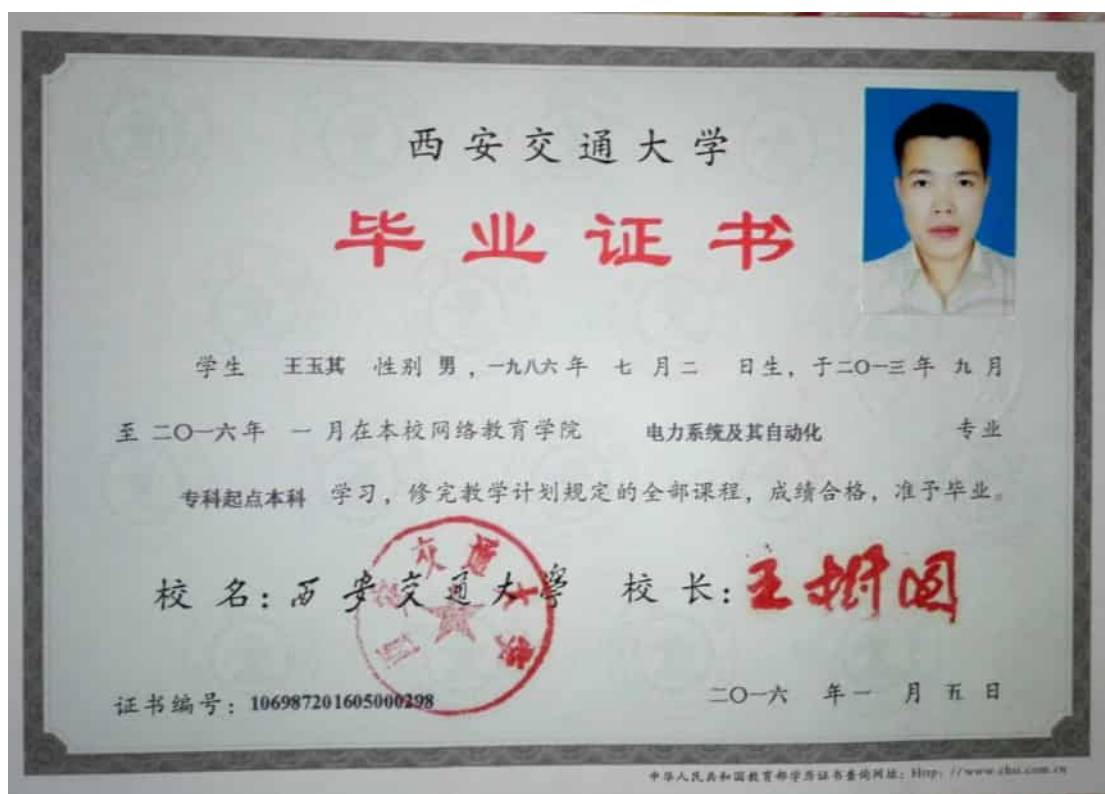 西安交通大学
毕业证书
学生 王玉其 性别 男，一九八六年 七 月二 日生，于二〇一三年 九月
至 二〇一六年 一 月在本校网络教育学院 电力系统及其自动化 专业
专科起点本科 学习，修完教学计划规定的全部课程，成绩合格，准予毕业。
校 名：西安交通大學 校 长：王树国
西安交通大学
证书编号：106987201605000298
二〇一六 年一 月 五 日
中华人民共和国教育部学历证书查询网址：Http：//www.chsi.com.cn